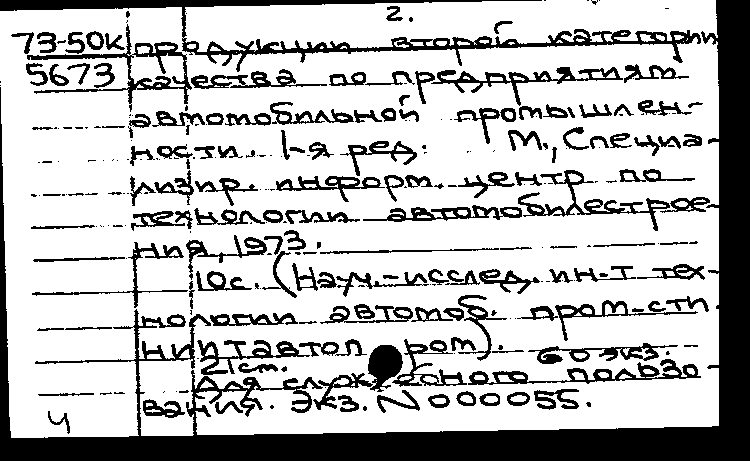 2.
73-50к продукции второй категории
5673 качества по предприятиям
автомобильной промышлен-
ности. 1-я ред. М., Специа-
лизир. информ. центр по
технологии автомобилестрое-
ния, 1973.
10с. (Науч.-исслед. ин-т тех-
нологии автомоб. пром-сти.
НИИТавтопром).
21 cm. 60 экз.
Для служебного пользо-
вания. Экз. N 000055.
Ч